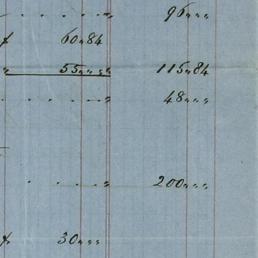 . . . . . „ 96 „ „ „
f 60 „ 84
„ 55 „ „ „ 115 „ 84
. . . . . „ 48 „ „ „
. . . . „ 200 „ „ „
f 30 „ „ „